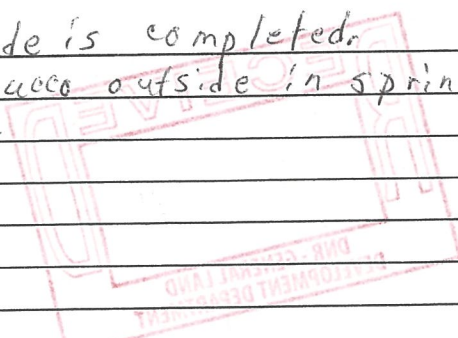 de is completed.
ucco outside in sprin
RECEIVED
DNR - GENERAL LAND
DEVELOPMENT DEPARTMENT